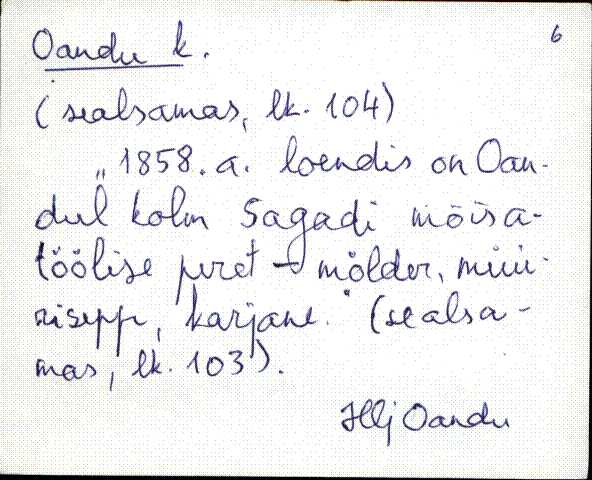 6
Oandu k.
(sealsamas, lk. 104)
„1858. a. loendis on Oan-
dul kolm Sagadi mõisa-
töölise peret – mölder, müü-
risepp, karjane." (sealsa-
mas, lk. 103).
Oandu